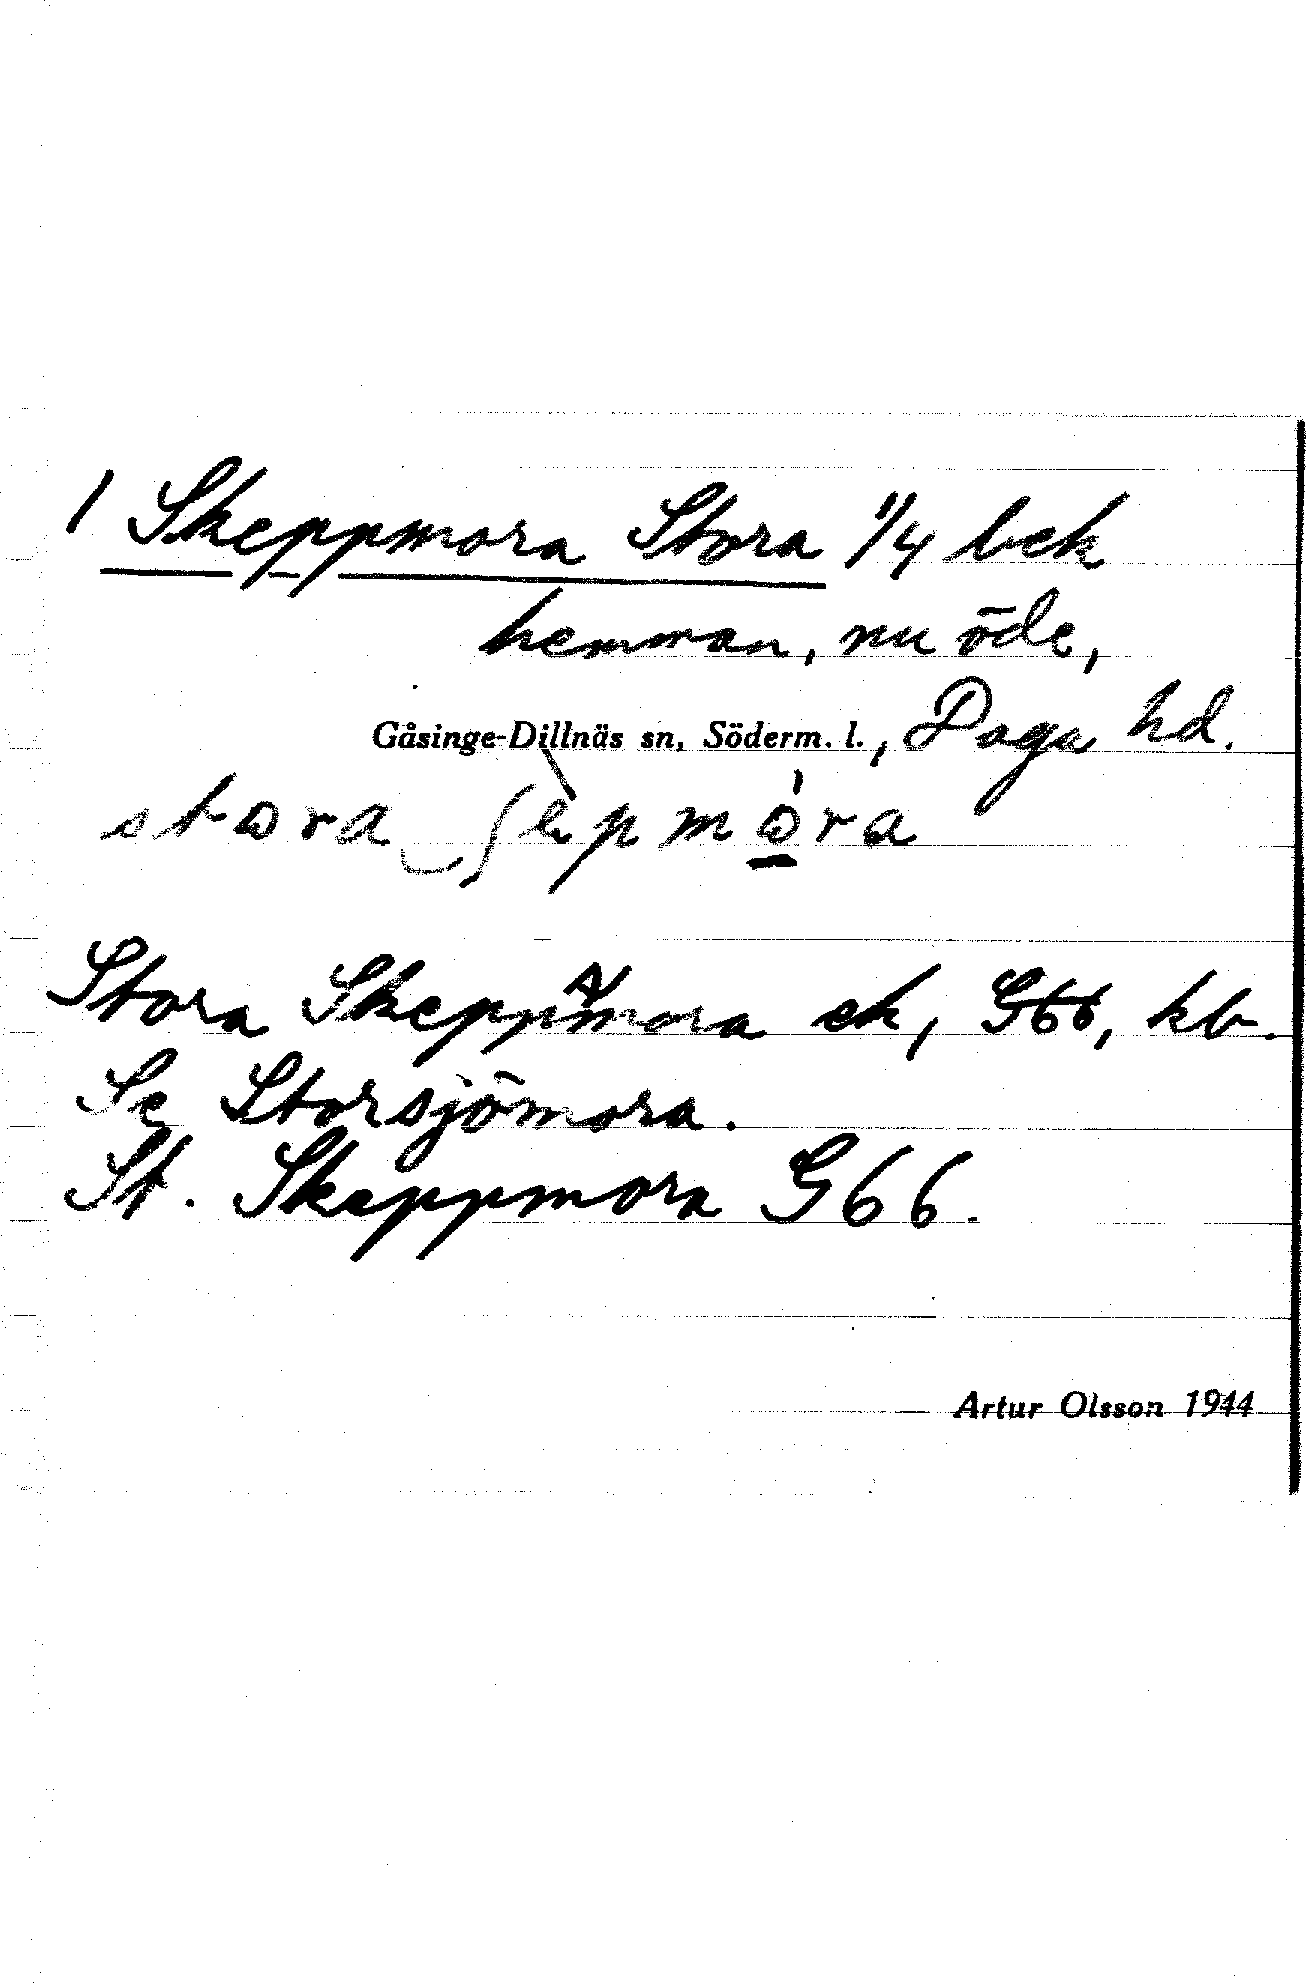 1 Skeppmora Stora 1/4 bek
hemman, nu öde,
Gåsinge-Dillnäs sn, Söderm. l., Daga hd.
stora ʃèpmóra
Stora Skeppmora ek, G66, kb.
Se Storsjömora.
St. Skeppmora G66.
Artur Olsson 1944